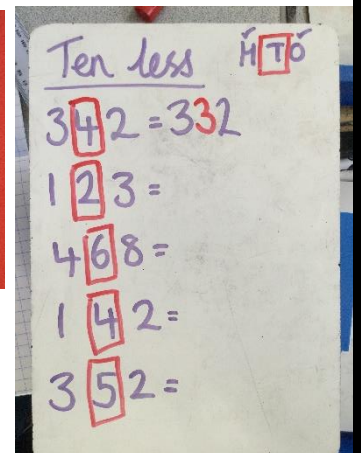 Ten less HTO
342 = 332
123 =
468 =
142 =
352 =